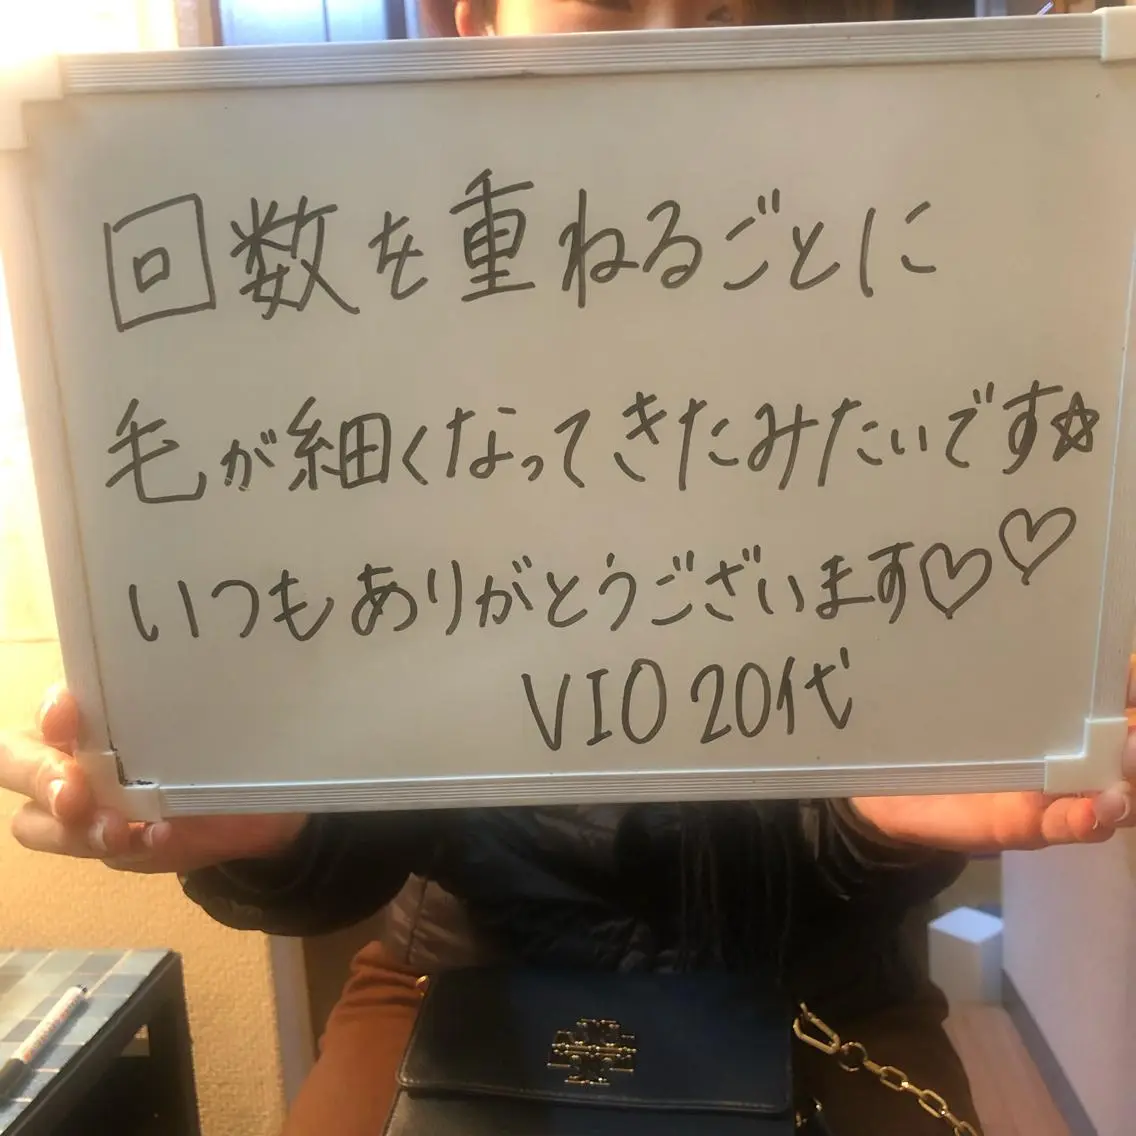 回数を重ねるごとに
毛が細くなってきたみたいです☆
いつもありがとうございます♡♡
VIO 20代